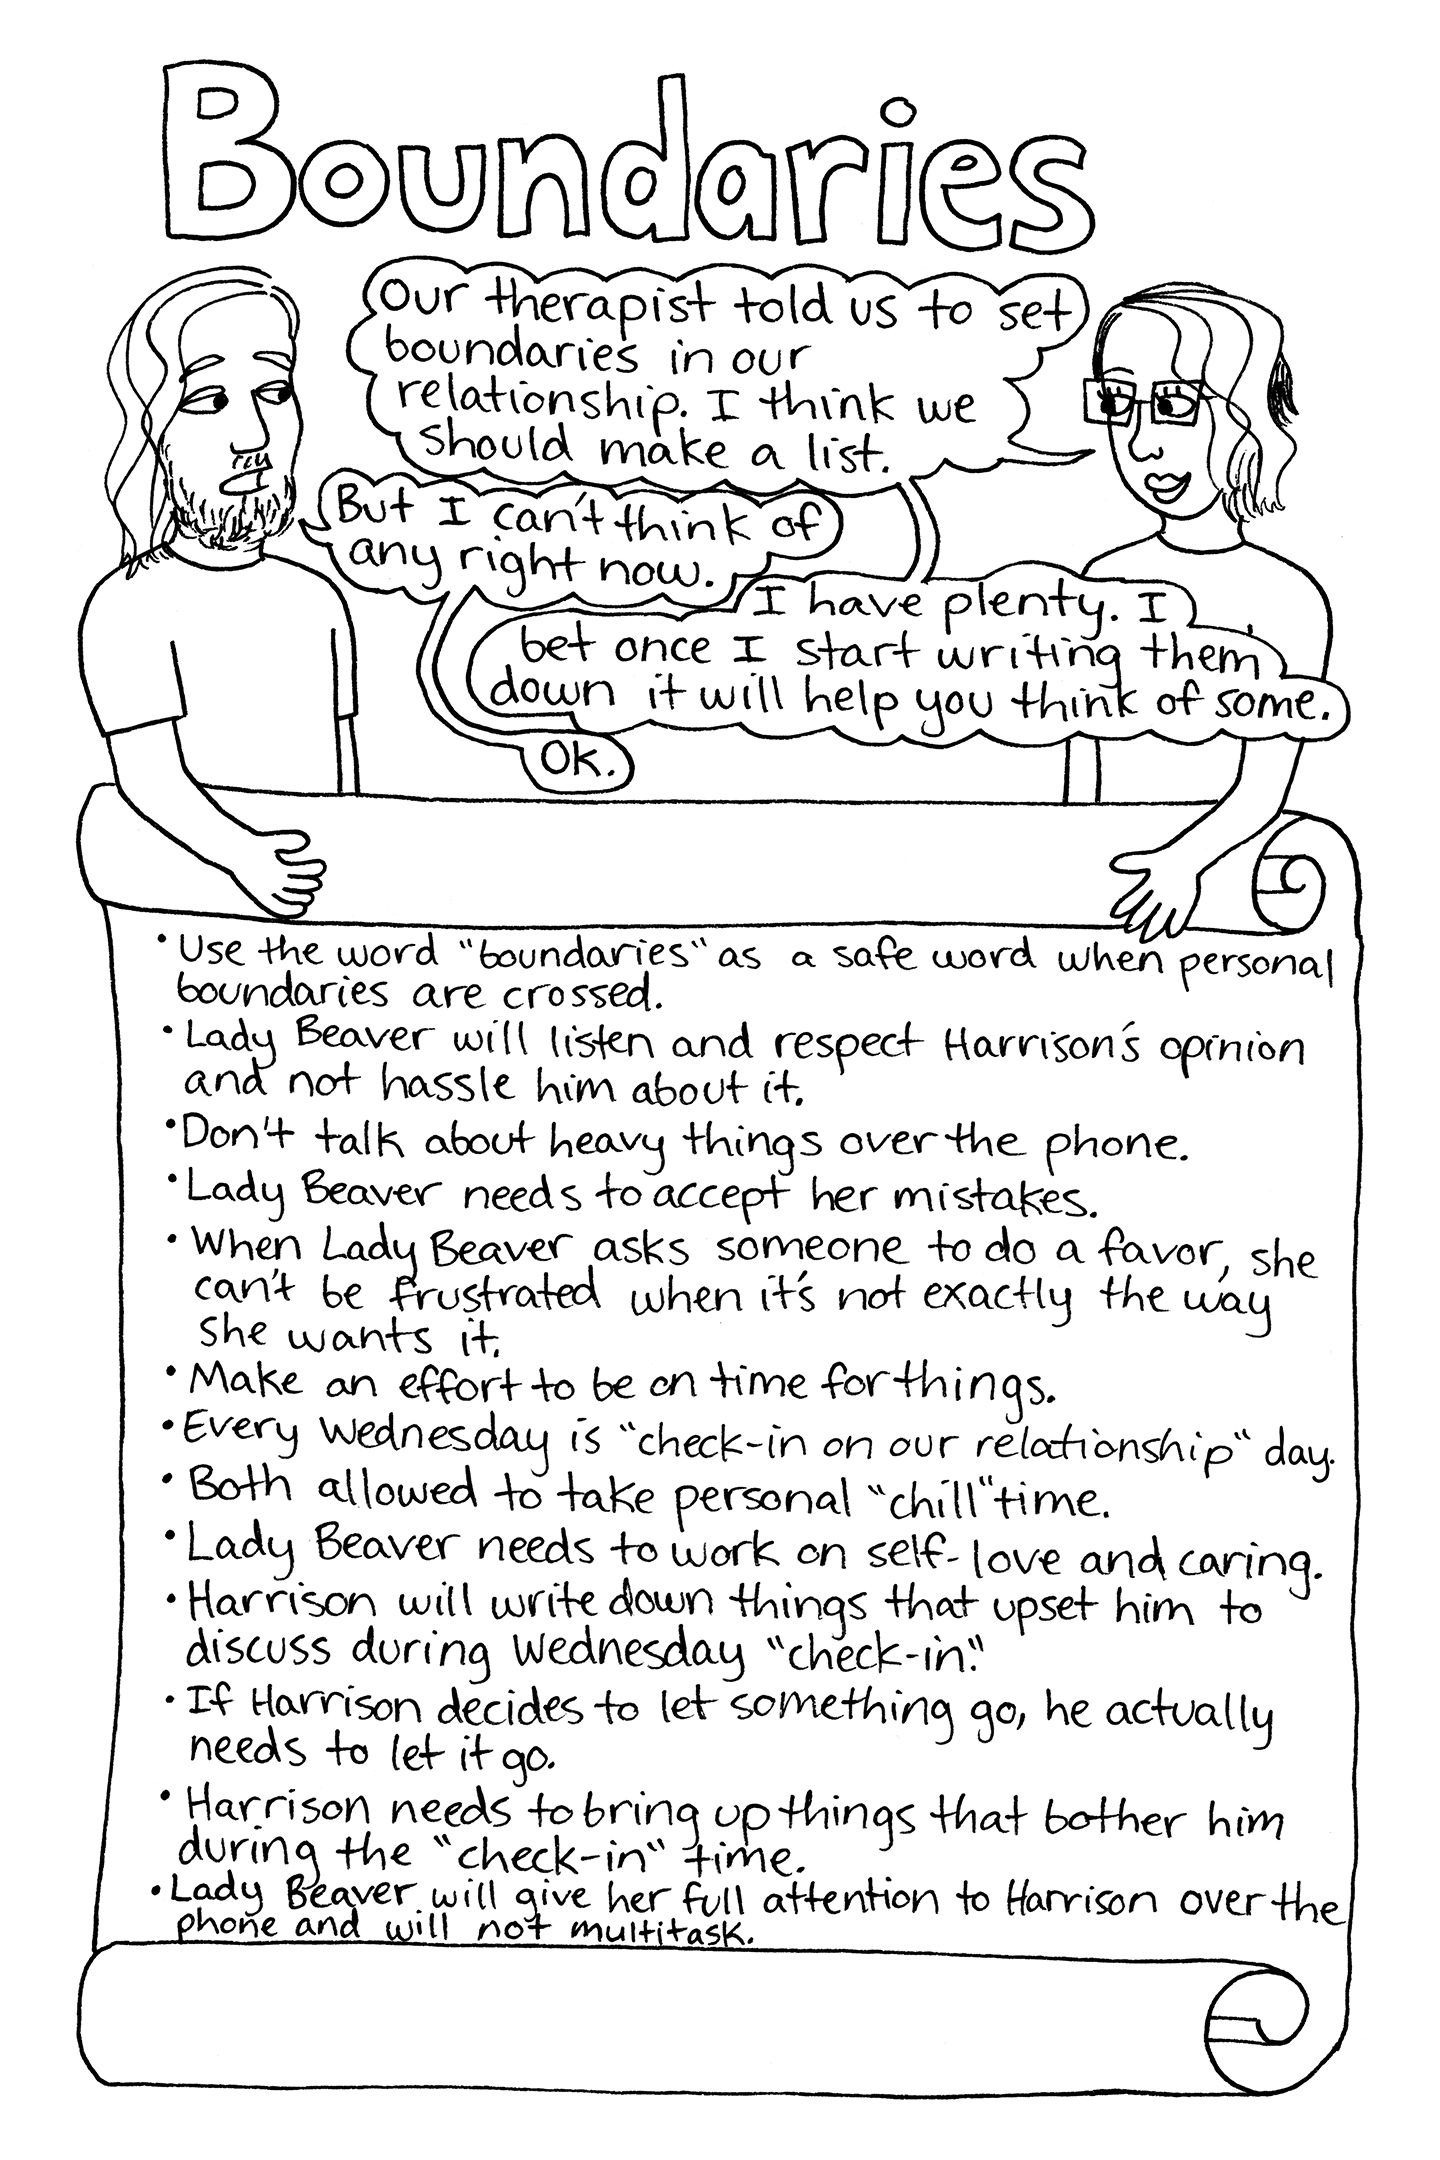 Boundaries
Our therapist told us to set
boundaries in our
relationship. I think we
should make a list.
But I can't think of
any right now.
I have plenty. I
bet once I start writing them
down it will help you think of some.
Ok.
• Use the word "boundaries" as a safe word when personal
boundaries are crossed.
• Lady Beaver will listen and respect Harrison's opinion
and not hassle him about it.
• Don't talk about heavy things over the phone.
• Lady Beaver needs to accept her mistakes.
• When Lady Beaver asks someone to do a favor, she
can't be frustrated when it's not exactly the way
she wants it.
• Make an effort to be on time for things.
• Every Wednesday is "check-in on our relationship" day.
• Both allowed to take personal "chill" time.
• Lady Beaver needs to work on self-love and caring.
• Harrison will write down things that upset him to
discuss during Wednesday "check-in."
• If Harrison decides to let something go, he actually
needs to let it go.
• Harrison needs to bring up things that bother him
during the "check-in" time.
• Lady Beaver will give her full attention to Harrison over the
phone and will not multitask.